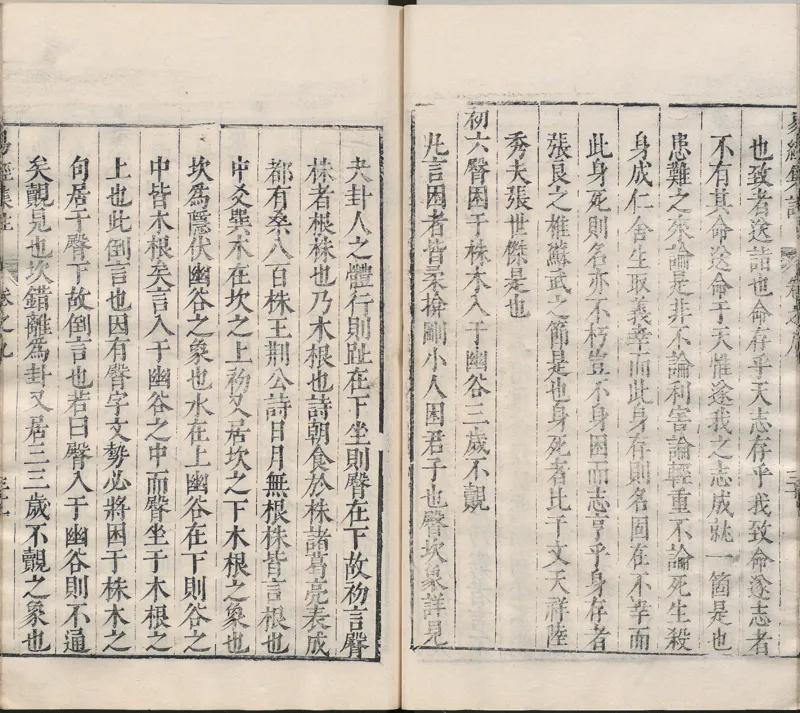 也致者送詰也命存乎天志存乎我致命遂志者
不有其命送命于天惟遂我之志成就一箇是也
患難之來論是非不論利害論輕重不論死生殺
身成仁舍生取義幸而此身存則名固在不幸而
此身死則名亦不朽豈不身困而志亨乎身存者
張良之椎蘇武之節是也身死者比干文天祥陸
秀夫張世傑是也
初六臀困于株木入于幽谷三歲不覿
凡言困者皆柔揜剛小人困君子也臀坎象詳見
夬卦人之體行則趾在下坐則臀在下故初言臀
株者根株也乃木根也詩朝食於株諸葛亮表成
都有桑八百株王荆公詩日月無根株皆言根也
中爻巽木在坎之上初又居坎之下木根之象也
坎爲隱伏幽谷之象也水在上幽谷在下則谷之
中皆木根矣言入于幽谷之中而臀坐于木根之
上也此倒言也因有臀字文勢必將困于株木之
句居于臀下故倒言也若曰臀入于幽谷則不通
矣覿見也坎錯離爲卦又居三三歲不覿之象也
易經集註
卷之九